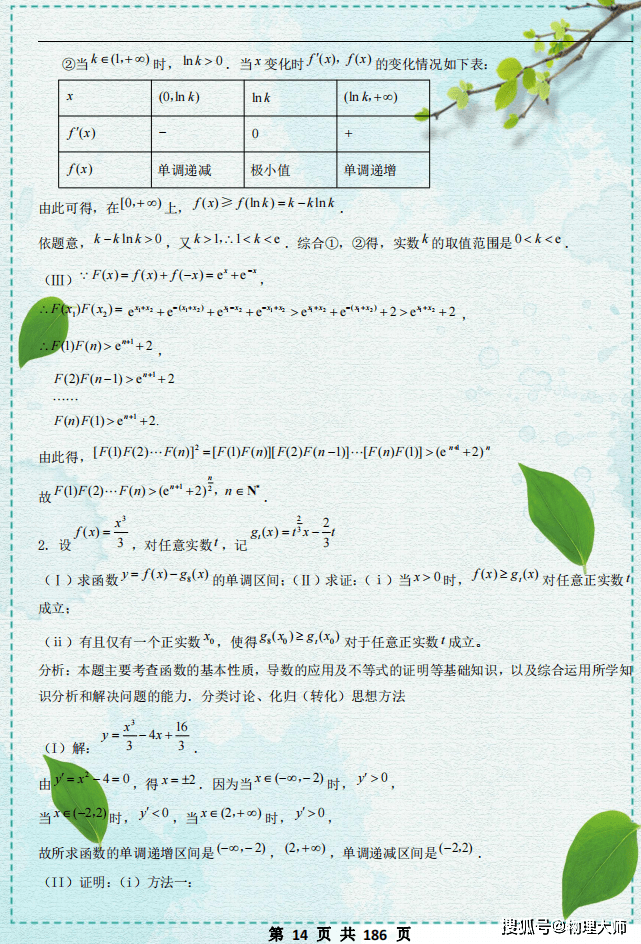 ②当 k∈(1,+∞) 时， ln k>0 ．当 x 变化时 f′(x)，f(x) 的变化情况如下表：
x (0,ln k) ln k (ln k,+∞)
f′(x) − 0 +
f(x) 单调递减 极小值 单调递增
由此可得，在 [0,+∞) 上， f(x)≥f(ln k)=k−k ln k ．
依题意， k−k ln k>0 ，又 k>1,∴1<k<e ．综合①，②得，实数 k 的取值范围是 0<k<e ．
（Ⅲ）∵F(x)=f(x)+f(−x)=eˣ+e⁻ˣ ，
∴F(x₁)F(x₂)= e^{x₁+x₂}+e^{−(x₁+x₂)}+e^{x₁−x₂}+e^{−x₁+x₂}>e^{x₁+x₂}+e^{−(x₁+x₂)}+2>e^{x₁+x₂}+2 ，
∴F(1)F(n)>e^{n+1}+2 ，
F(2)F(n−1)>e^{n+1}+2
……
F(n)F(1)>e^{n+1}+2.
由此得，[F(1)F(2)⋯F(n)]²=[F(1)F(n)][F(2)F(n−1)]⋯[F(n)F(1)]>(e^{n+1}+2)ⁿ
故 F(1)F(2)⋯F(n)>(e^{n+1}+2)^{n/2}，n∈N* ．
2．设 f(x)=x³/3 ，对任意实数 t ，记 g_t(x)=t^{2/3}x−(2/3)t
（Ⅰ）求函数 y=f(x)−g₈(x) 的单调区间；（Ⅱ）求证：（ⅰ）当 x>0 时， f(x)≥g_t(x) 对任意正实数 t
成立；
（ⅱ）有且仅有一个正实数 x₀ ，使得 g₈(x₀)≥g_t(x₀) 对于任意正实数 t 成立。
分析：本题主要考查函数的基本性质，导数的应用及不等式的证明等基础知识，以及综合运用所学知
识分析和解决问题的能力．分类讨论、化归（转化）思想方法
（I）解： y=x³/3−4x+16/3 ．
由 y′=x²−4=0 ，得 x=±2 ．因为当 x∈(−∞,−2) 时， y′>0 ，
当 x∈(−2,2) 时， y′<0 ，当 x∈(2,+∞) 时， y′>0 ，
故所求函数的单调递增区间是 (−∞,−2) ， (2,+∞) ，单调递减区间是 (−2,2) ．
（II）证明：（i）方法一：
第 14 页 共 186 页
搜狐号@物理大师